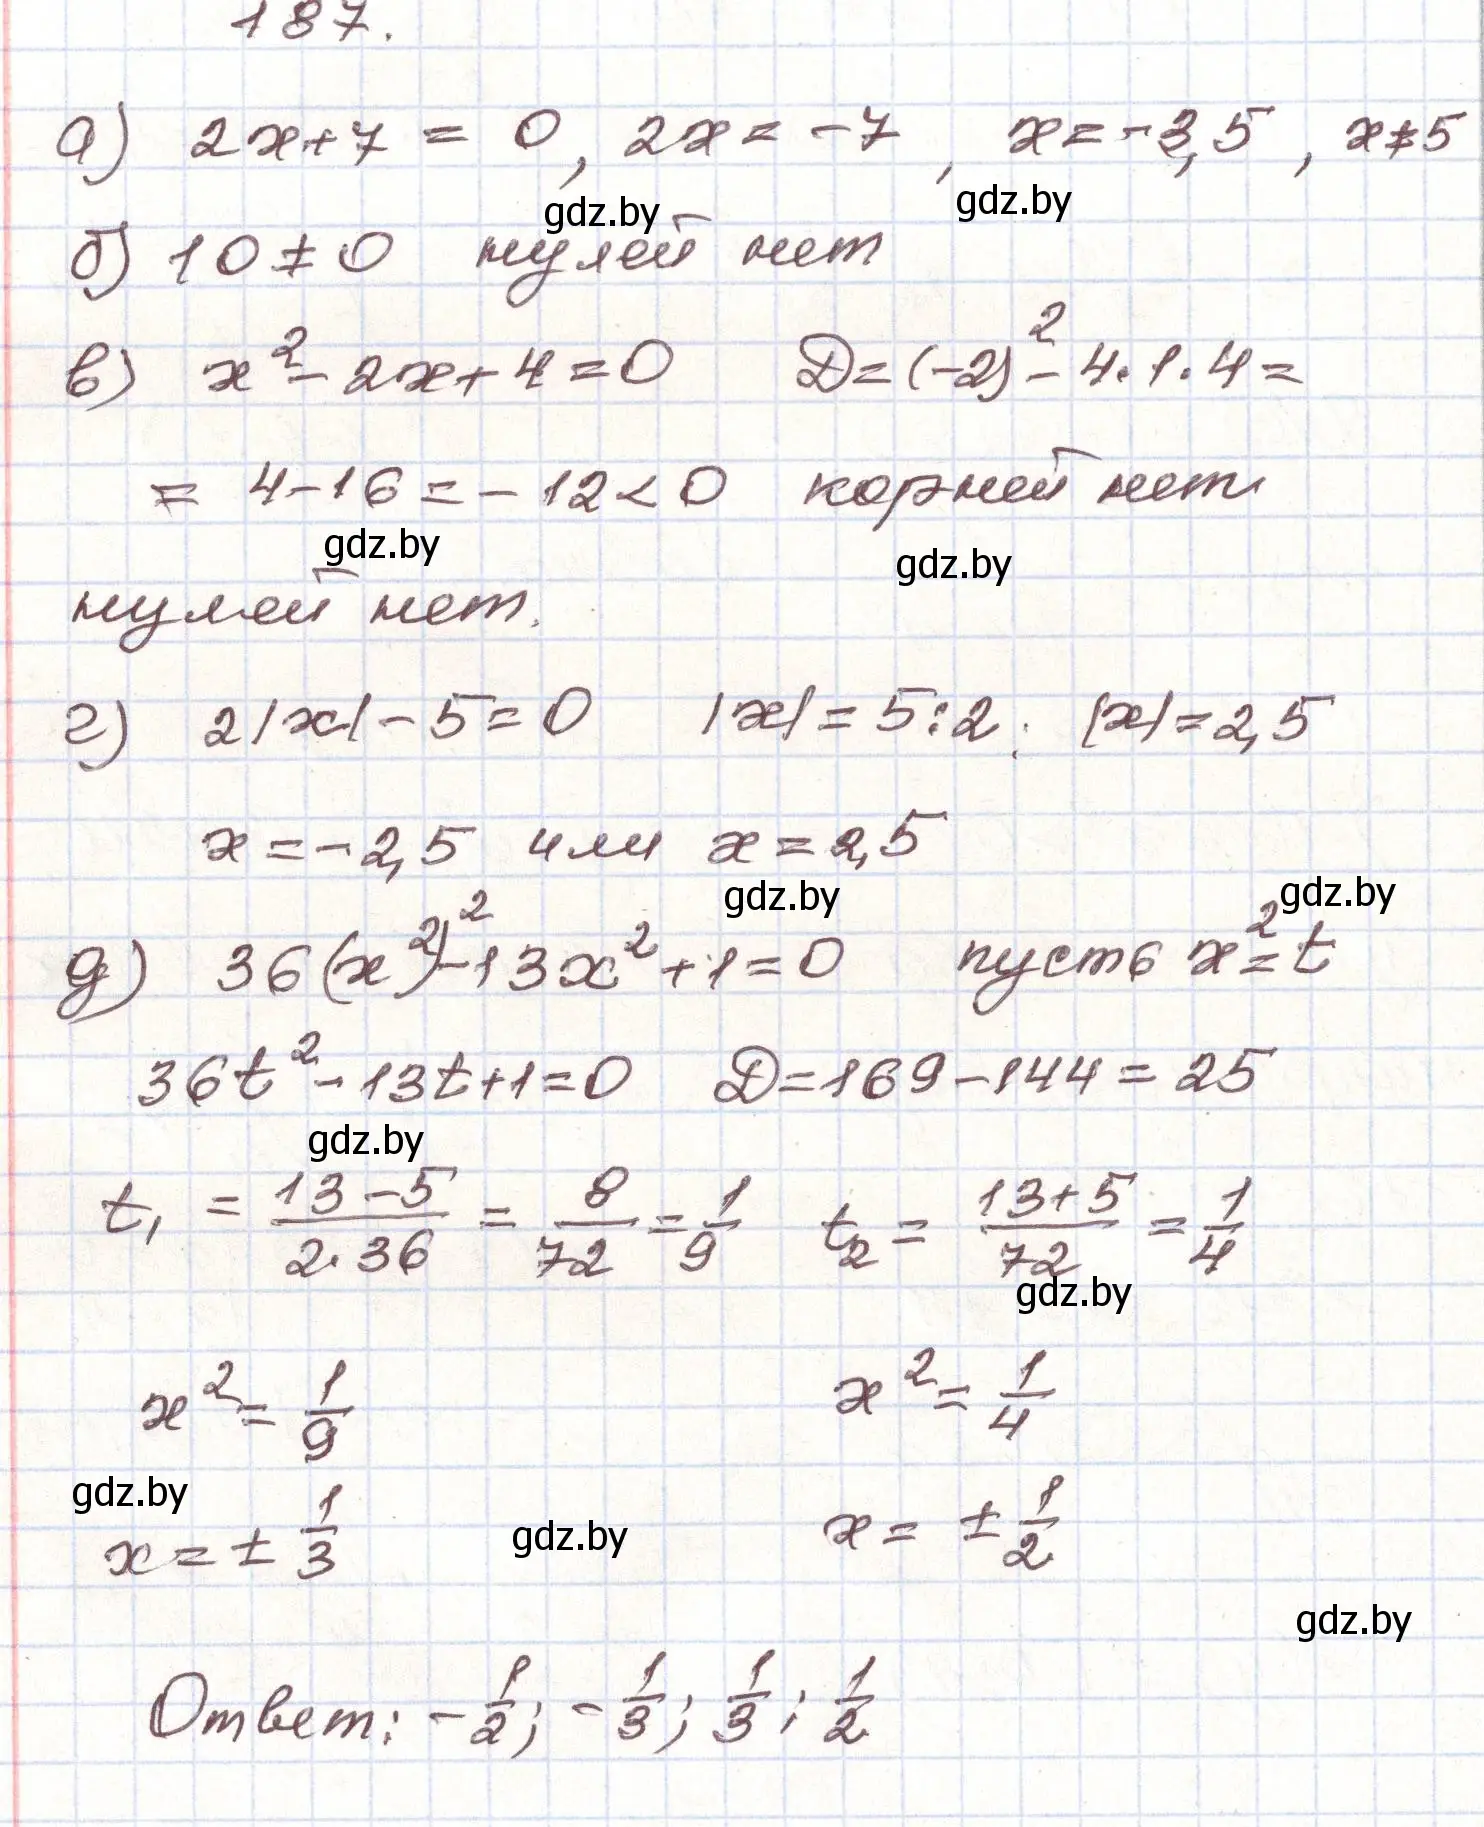 187.
а) 2x+7 = 0, 2x = -7, x = -3,5, x≠5
gdz.by gdz.by
б) 10 ≠ 0 нулей нет
в) x² - 2x + 4 = 0 D = (-2)² - 4·1·4 =
= 4 - 16 = - 12 < 0 корней нет
gdz.by gdz.by
нулей нет.
г) 2|x| - 5 = 0 |x| = 5:2; |x| = 2,5
x = -2,5 или x = 2,5
gdz.by gdz.by
д) 36(x²)² - 13x² + 1 = 0 пусть x² = t
36t² - 13t + 1 = 0 D = 169 - 144 = 25
gdz.by
t₁ = (13-5)/(2·36) = 8/72 = 1/9 t₂ = (13+5)/72 = 1/4
gdz.by
x² = 1/9 x² = 1/4
gdz.by gdz.by
x = ± 1/3 x = ± 1/2
gdz.by
Ответ: -1/2; -1/3; 1/3; 1/2